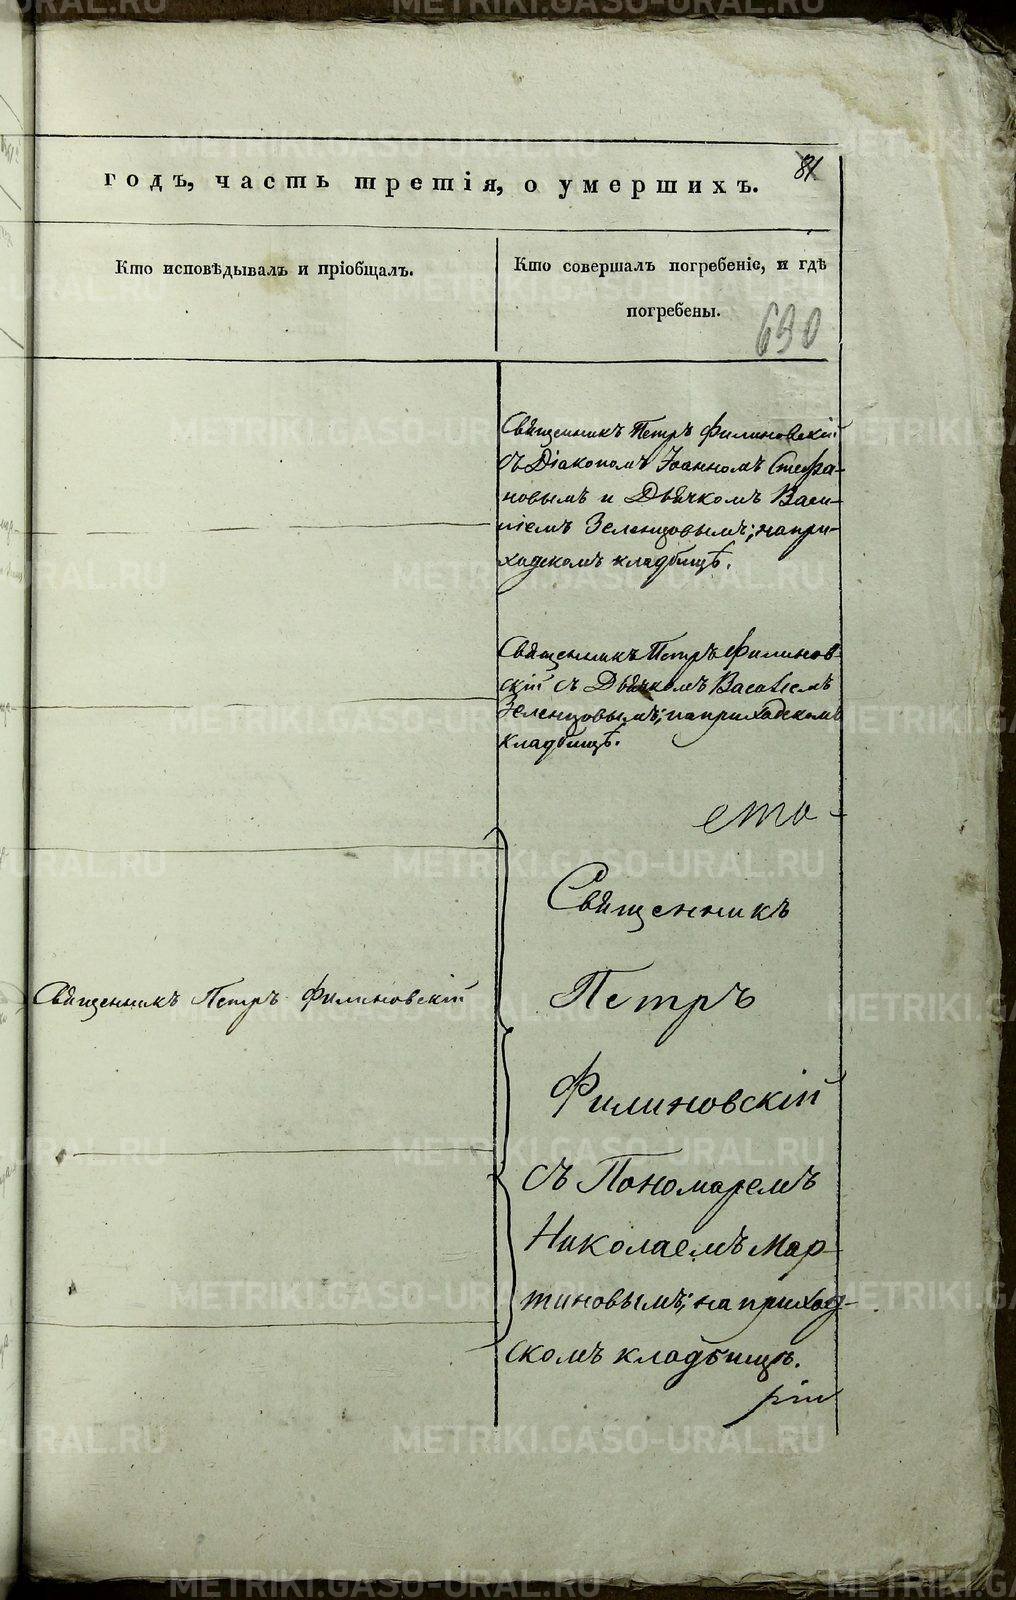 годъ, часть третія, о умершихъ.
Кто исповѣдывалъ и пріобщалъ.
Кто совершалъ погребеніе, и гдѣ
погребены.
690
Священникъ Петръ Филиновскій
съ Діакономъ Іоанномъ Стефа-
новымъ и Дьячкомъ Васи-
ліемъ Зеленцовымъ; на при-
ходскомъ кладбищѣ.
Священникъ Петръ Филинов-
скій съ Дьячкомъ Василіемъ
Зеленцовымъ; на приходскомъ
кладбищѣ.
Священникъ Петръ Филиновскій
Священникъ
Петръ
Филиновскій
съ Пономаремъ
Николаемъ Мар-
тиновымъ; на приход-
скомъ кладбищѣ.
METRIKI.GASO-URAL.RU